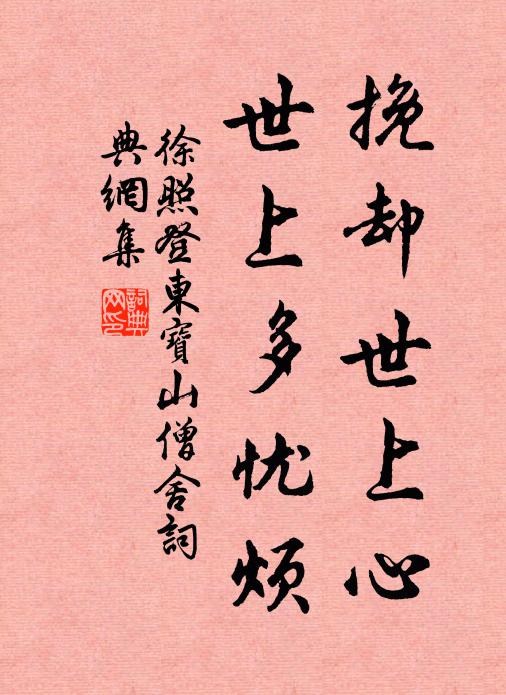 挽却世上心
世上多忧烦
徐照登東寶山僧舍詞
典網集
詞典
网印